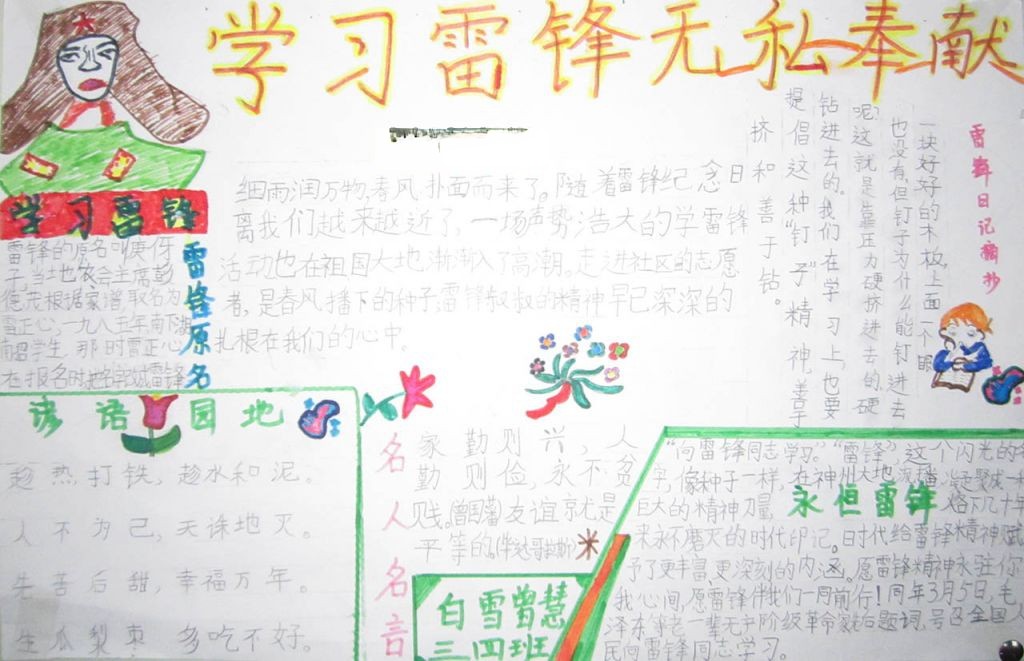 学习雷锋无私奉献
学习雷锋
雷锋原名
雷锋的原名叫庚伢
子,当地农会主席彭
德茂根据家谱取名为
雷正心,一九八五年南下湖
南招学生,那时雷正心
在报名时改名字
细雨润万物,春风扑面而来了。随着雷锋纪念日
离我们越来越近了,一场声势浩大的学雷锋
活动也在祖国大地渐渐入了高潮。走进社区的志愿
者,是春风播下的种子,雷锋叔叔的精神早已深深的
扎根在我们的心中。
雷锋日记摘抄
一块好好的木板,上面一个眼
也没有,但钉子为什么能钉进去
呢?这就是靠压力硬挤进去的,硬
钻进去的。我们在学习上,也要
提倡这种"钉子"精神,善于
挤和善于钻。
谚语园地
趁热打铁,趁水和泥。
人不为己,天诛地灭。
先苦后甜,幸福万年。
生瓜梨枣 多吃不好。
名人名言
家勤则兴,人
勤则俭,永不贫
贱。曾国藩 友谊就是
平等的。(毕达哥拉斯)
白雪 曾慧
三四班
永恒雷锋
"向雷锋同志学习。""雷锋"这个闪光的
字,像种子一样,在神州大地
巨大的精神力量,烙下几十年
来永不磨灭的时代印记。时代给雷锋精神赋
予了更丰富更深刻的内涵。愿雷锋精神永驻你
我心间,愿雷锋伴我们一同前行!同年3月5日,毛
泽东等老一辈无产阶级革命家 题词,号召全国人
民向雷锋同志学习。